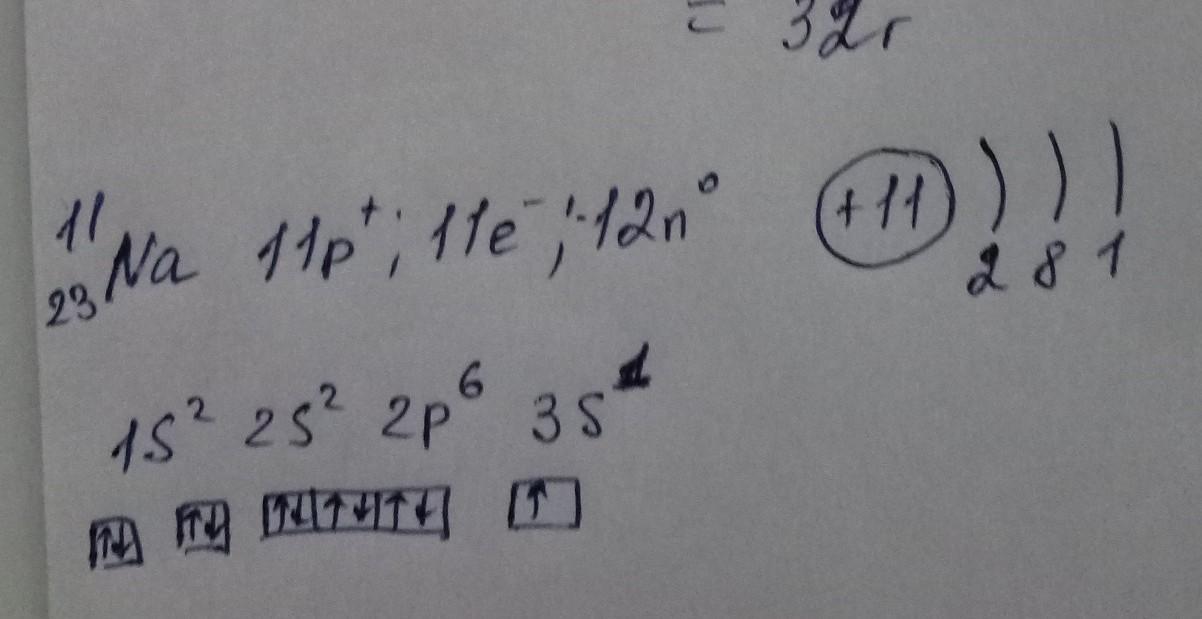 = 32г
11 23 Na 11p⁺; 11e⁻; 12n⁰ +11 ) ) )
2 8 1
1S² 2S² 2p⁶ 3S¹
↑↓ ↑↓ ↑↓ ↑↓ ↑↓ ↑